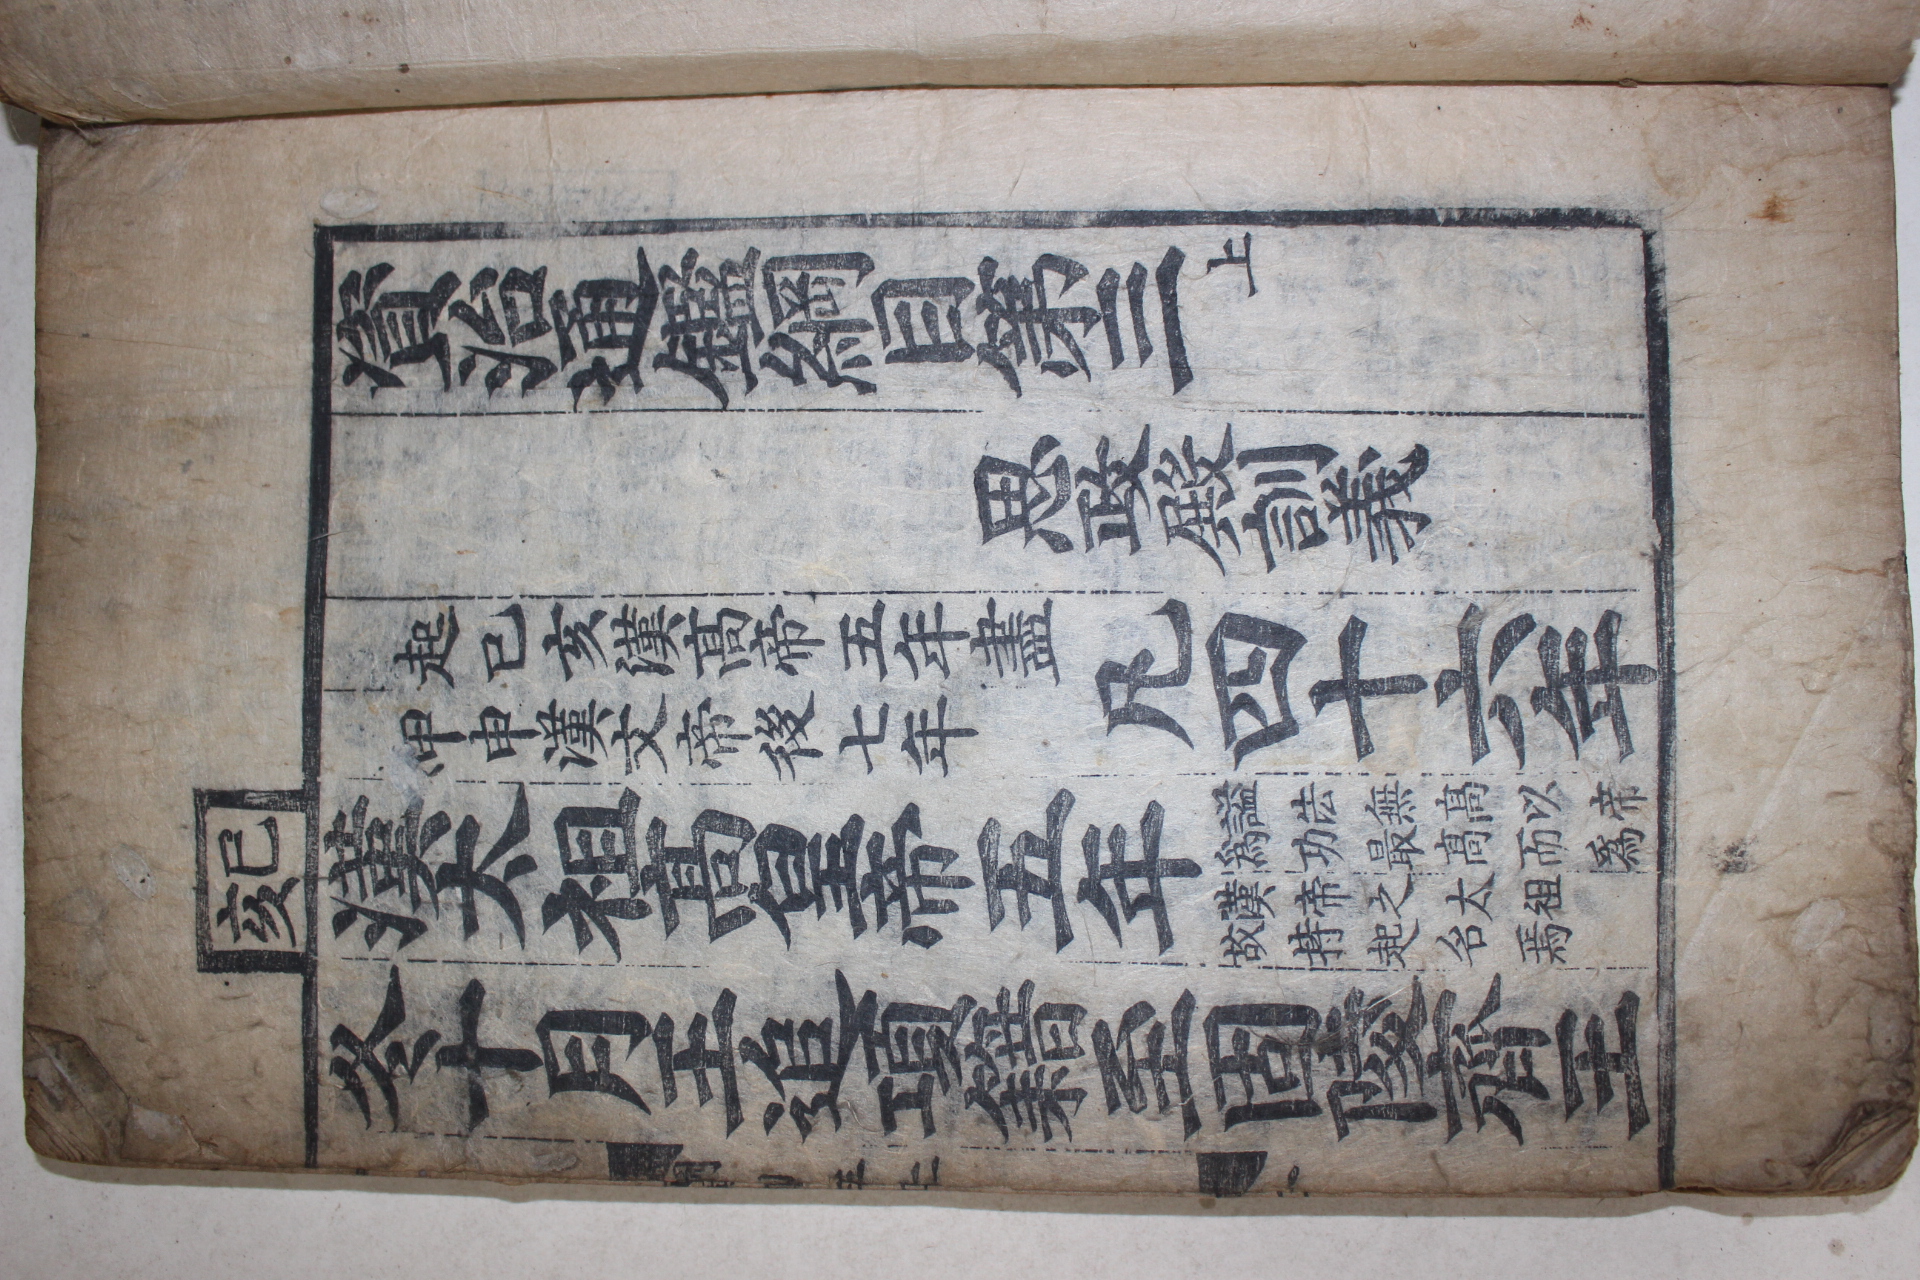 資治通鑑綱目第三上
思政殿訓義
起己亥漢高帝五年盡
甲申漢文帝後七年
凡四十六年
己亥
漢太祖高皇帝五年
諡法無高以帝
為功最高而為
漢帝之太祖
故持起名焉
冬十月王追項籍至固陵齊王